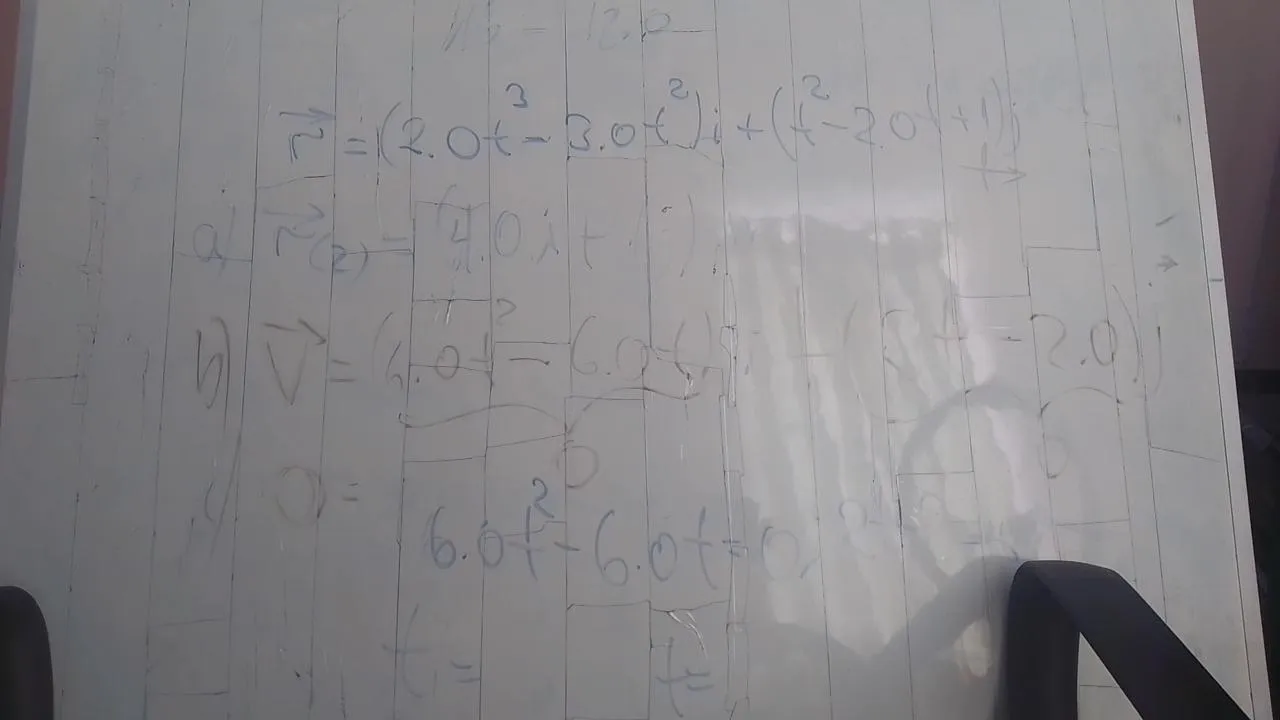 = 12.0
r⃗ = (2.0t³ - 3.0t²)i + (t² - 2.0t + 1)j
a) r⃗(2) = (4.0i + 1j)
b) V⃗ = (6.0t² - 6.0t)i + (2t - 2.0)j
0 0
0 =
6.0t² - 6.0t = 0
t = t =